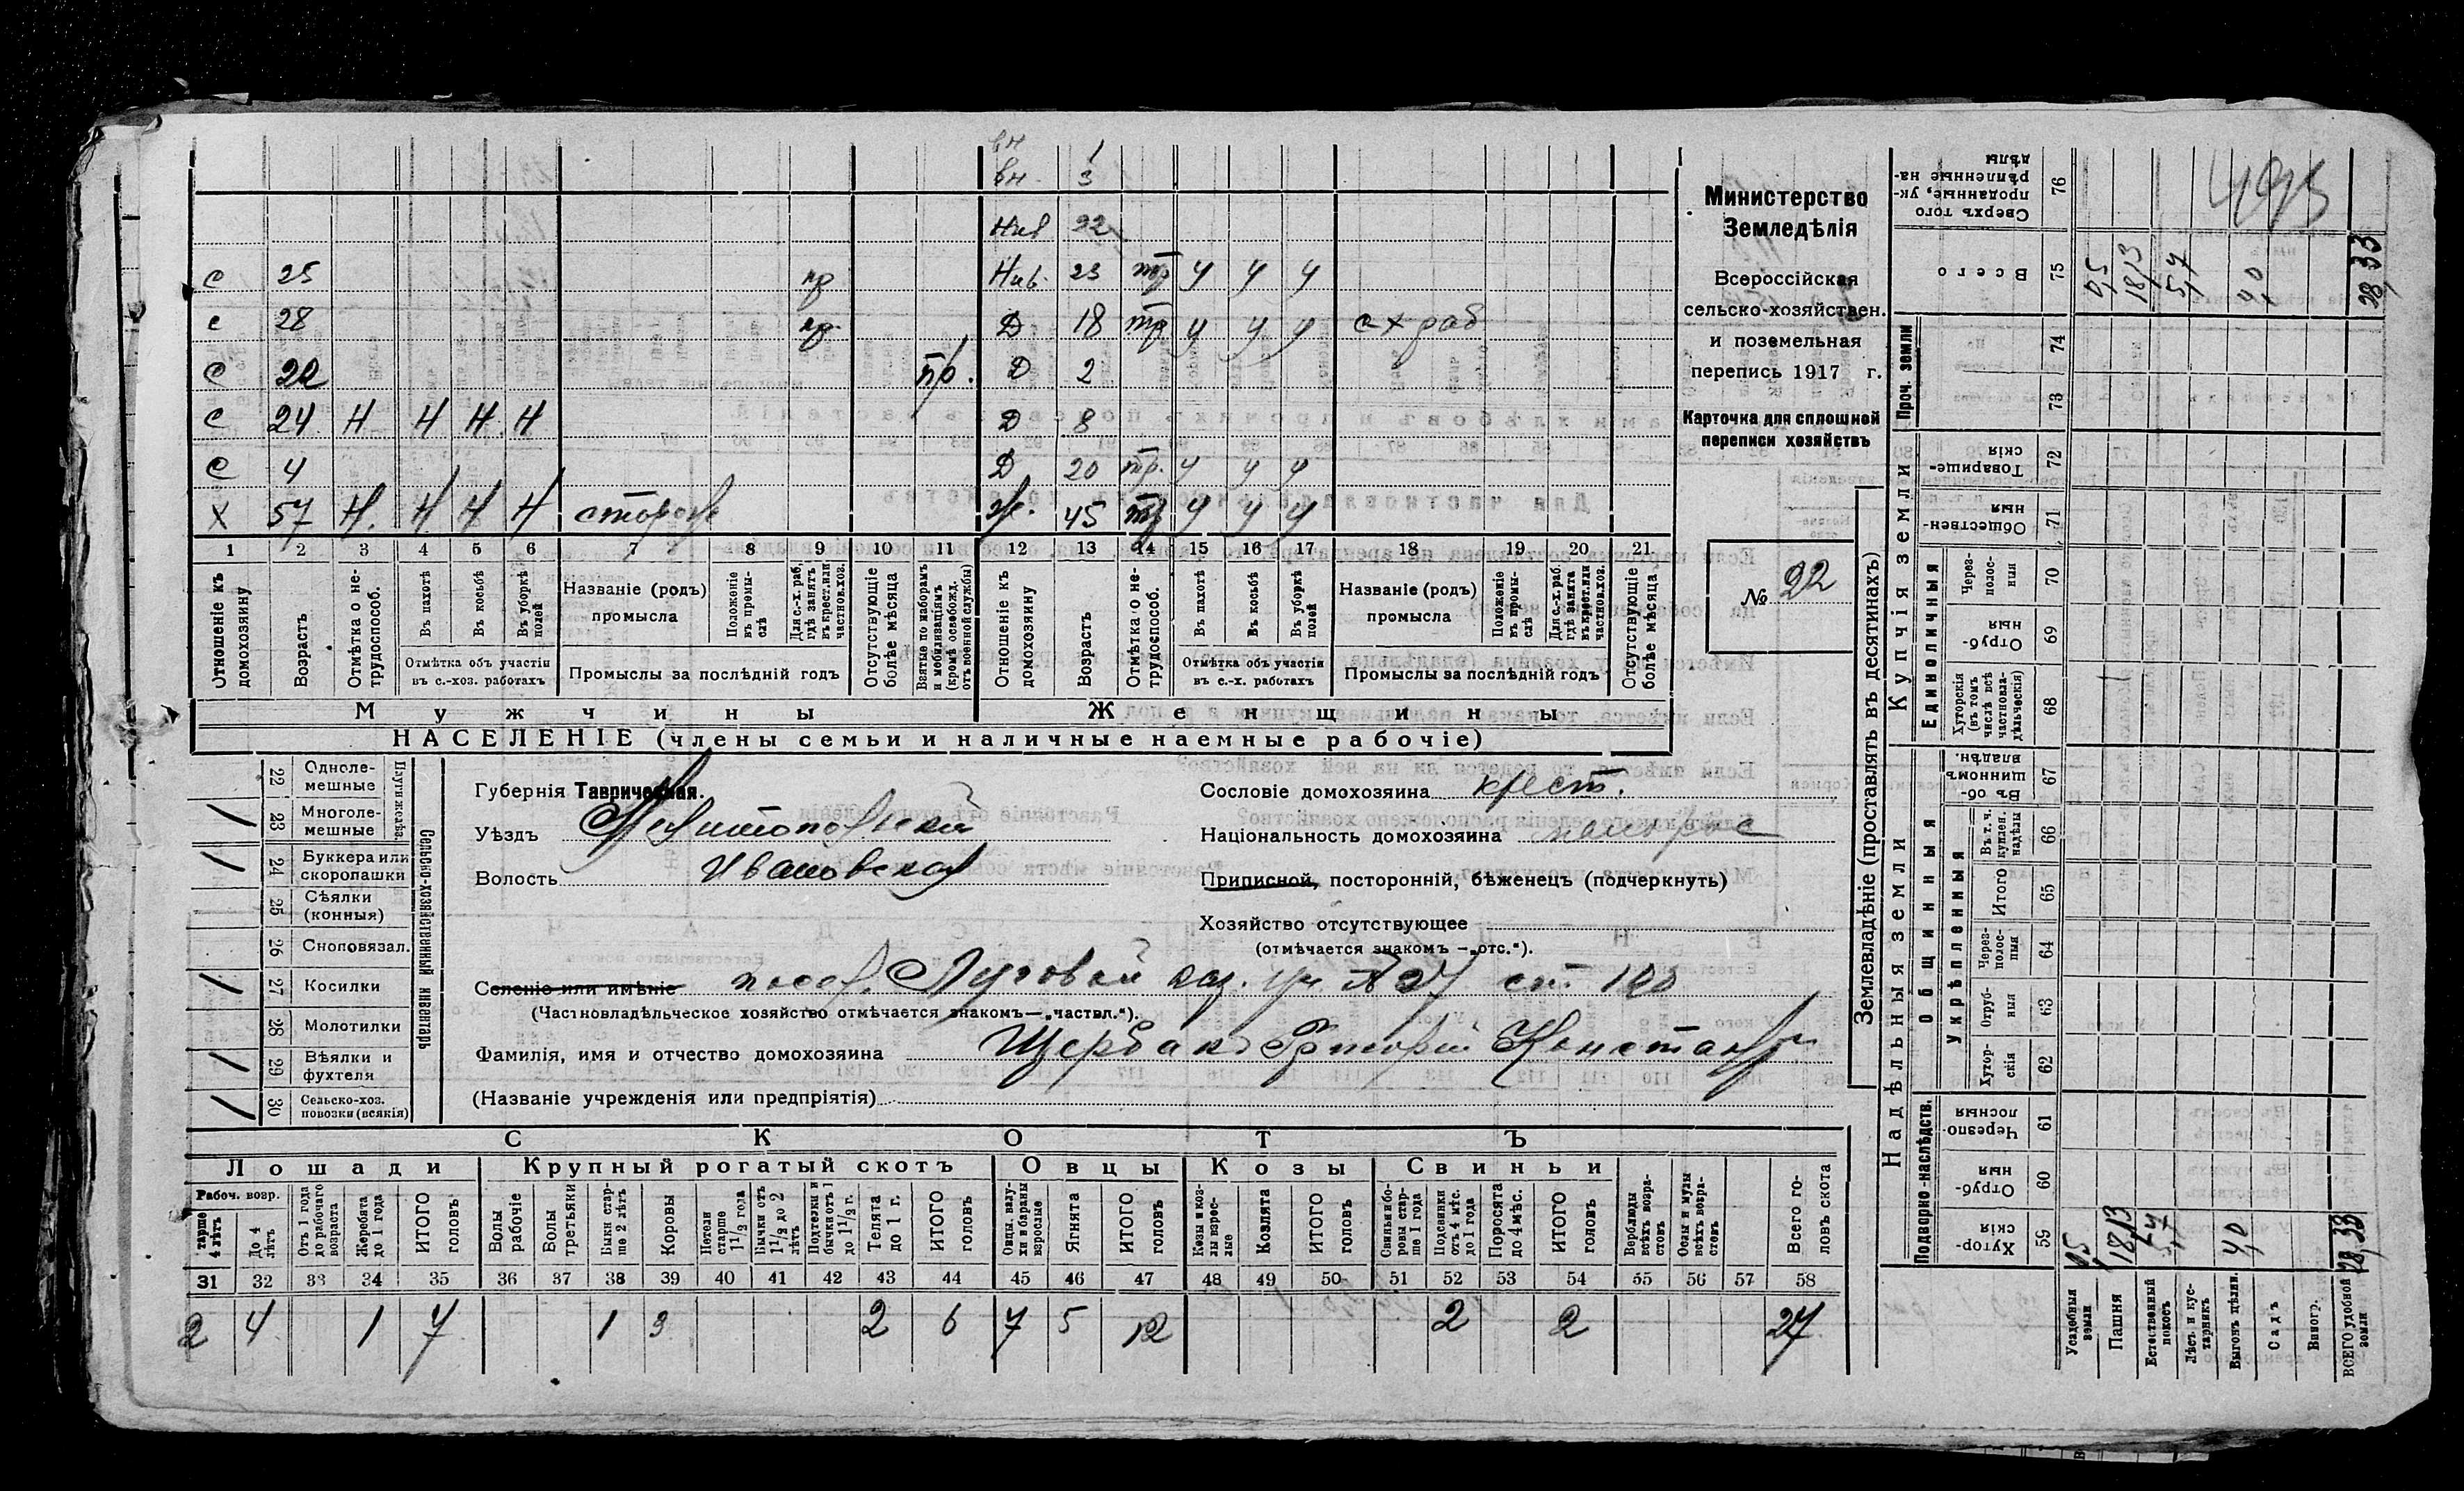 вн 1
вн. 3
Нив 22
С 25 пр Нив. 23 тр у у у
с 28 пр. Д 18 тр у у у с х раб
С 22 пр. Д 2
С 24 Н Н Н Н Д 8
С 4 Д 20 тр. у у у
Х 57 Н. Н Н Н сторож ж. 45 тр у у у
1 2 3 4 5 6 7 8 9 10 11 12 13 14 15 16 17 18 19 20 21
Отношеніе къ домохозяину
Возрастъ
Отмѣтка о нетрудоспособ.
Въ пахотѣ
Въ косьбѣ
Въ уборкѣ полей
Отмѣтка объ участіи въ с.-хоз. работахъ
Названіе (родъ) промысла
Положеніе въ промыслѣ
Для с.-х. раб. гдѣ занятъ въ крест. или частнов. хоз.
Промыслы за послѣдній годъ
Отсутствующіе болѣе мѣсяца
Взятые по наборамъ и мобилизаціямъ (кромѣ освобожд. отъ военной службы)
Отношеніе къ домохозяину
Возрастъ
Отмѣтка о нетрудоспособ.
Въ пахотѣ
Въ косьбѣ
Въ уборкѣ полей
Отмѣтка объ участіи въ с.-х. работахъ
Названіе (родъ) промысла
Положеніе въ промыслѣ
Для с.-х. раб. гдѣ занята въ крест. или частнов. хоз.
Промыслы за послѣдній годъ
Отсутствующіе болѣе мѣсяца
Мужчины Женщины
НАСЕЛЕНІЕ (члены семьи и наличные наемные рабочіе)
Министерство
Земледѣлія
Всероссійская
сельско-хозяйствен.
и поземельная
перепись 1917 г.
Карточка для сплошной
переписи хозяйствъ
№ 22
22 Одноле-мешные
/ 23 Многоле-мешные
Плуги желѣз.
/ 24 Буккера или скоропашки
25 Сѣялки (конныя)
26 Сноповязал.
/ 27 Косилки
28 Молотилки
/ 29 Вѣялки и фухтеля
/ 30 Сельско-хоз. повозки (всякія)
Сельско-хозяйственный инвентарь
Губернія Таврическая.
Уѣздъ Мелитопольскій
Волость Ивановская
Сословіе домохозяина крест.
Національность домохозяина малорос
Приписной, посторонній, бѣженецъ (подчеркнуть)
Хозяйство отсутствующее
(отмѣчается знакомъ —„отс.“).
Селеніе или имѣніе посел. Луговой каз. уч № 27 ст. 120
(Частновладѣльческое хозяйство отмѣчается знакомъ—„частвл.“).
Фамилія, имя и отчество домохозяина Щербакъ Григорій Констант
(Названіе учрежденія или предпріятія)
СКОТЪ
Лошади Крупный рогатый скотъ Овцы Козы Свиньи
Рабоч. возр.
тарше 4 лѣтъ
До 4 лѣтъ
Отъ 1 года до рабочаго возраста
Жеребята до 1 года
ИТОГО головъ
Волы рабочіе
Волы третьяки
Быки старше 2 лѣтъ
Коровы
Нетели старше 1 1/2 года
Бычки отъ 1 1/2 до 2 лѣтъ
Подтелки и бычки отъ 1 до 1 1/2 г.
Телята до 1 г.
ИТОГО головъ
Овцы, валухи и бараны взрослые
Ягнята
ИТОГО головъ
Козы и козлы взрослые
Козлята
ИТОГО головъ
Свиньи и боровы старше 1 года
Подсвинки отъ 4 мѣс. до 1 года
Поросята до 4 мѣс.
ИТОГО головъ
Верблюды всѣхъ возрастовъ
Ослы и мулы всѣхъ возрастовъ
Всего головъ скота
31 32 33 34 35 36 37 38 39 40 41 42 43 44 45 46 47 48 49 50 51 52 53 54 55 56 57 58
2 4 1 7 1 3 2 6 7 5 12 2 2 27
Землевладѣніе (проставлять въ десятинахъ)
Надѣльныя земли
Купчія земли
Проч. земли
Подворно-наслѣдств.
Общинныя
Укрѣпленныя
Единоличныя
Хуторскія 59
Отрубныя 60
Черезполосныя 61
Хуторскія 62
Отрубныя 63
Черезполосныя 64
Итого 65
Въ т. ч. куплен. надѣлы 66
Въ общинномъ владѣн. 67
Хуторскія (въ томъ числѣ всѣ частновладѣльческія) 68
Отрубныя 69
Черезполосныя 70
Общественныя 71
Товарищескія 72
73
74
Всего 75
Сверхъ того проданные, укрѣпленные надѣлы 76
Усадебныя земли 0,5 0,5
Пашня 18,13 18,13
Естественный покосъ 5,7 5,7
Лѣсъ и кустарникъ
Выгонъ цѣлин. 4,0 4,0
Садъ
Виногр.
ВСЕГО удобной земли 28,33 28,33
495